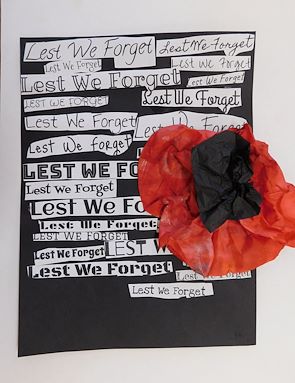 Lest We Forget Lest We Forget
Lest We Forget Lest We Forget
Lest We Forget Lest We Forget
LEST WE FORGET Lest We Forget
Lest We Forget Lest We Forget
Lest We forget
LEST WE FO
Lest We Forget
LEST WE FOR
Lest We Forget
LEST WE FORGET
Lest We Forget LEST W
Lest We Forget Lest We Forget
Lest We Forget